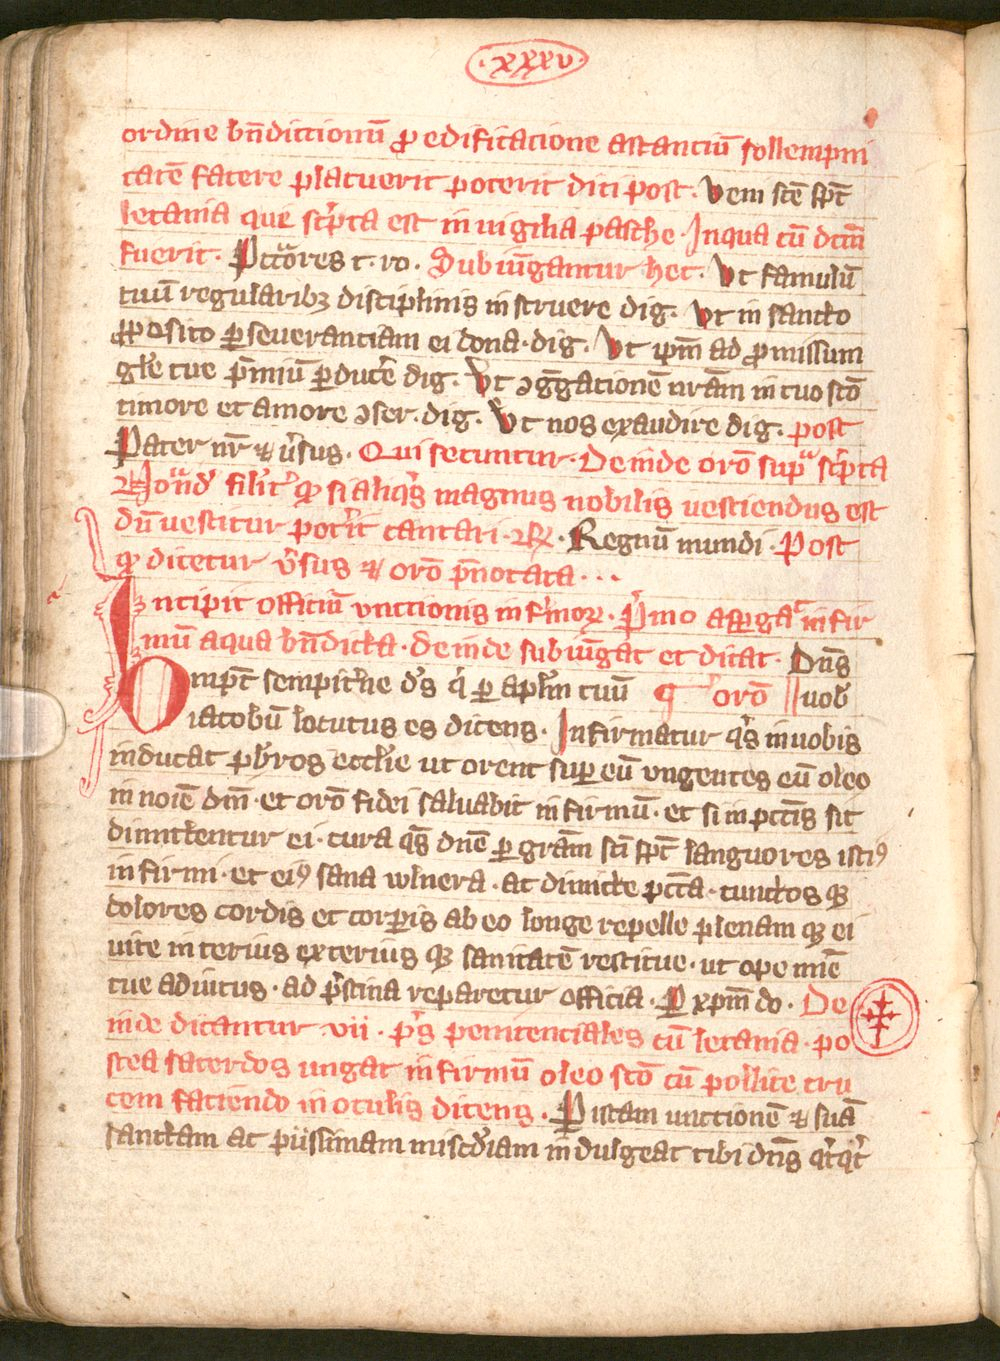 ·xxxv·
ordine bn̄dictionū ꝓ edificacione astanciū sollempni
tatē facere placuerit poterit dici post. Veni sc̄e sp̄c
letania que sc̓pta est in vigilia pasche. In qua cū dcm̄
fuerit. Pctōres t. ro. Subiūgantur hec. Ut famulū
tuū regularibꝫ disciplinis instruere dig. Ut in sancto
ꝓposito ꝑseverantiam ei dona. dig. Ut ip̄m ad ꝓmissum
gl̄e tue p̄miū ꝑduc̓e dig. Ut ɔgḡacionē nr̄am in tuo sc̄o
timore et amore ɔser. dig. Ut nos exaudire dig. post
Pater nr̄ ⁊ v̓sus. Qui secuntur. Deinde or̄o supᵃ sc̓pta
filit̓ ꝙ si aliqͥs magnus nobilis vestiendus est
dū vestitur pot̓it cantari. ℟. Regnū mundi. Post
ꝙ dicetur v̓sus ⁊ or̄o p̄notata...
Incipit officiū unctionis inf̓moꝝ. P̓mo aspergat infir
mū aqua bn̄dicta. deinde subiūgat et dicat. Dn̄s
Omp̄c sempit̓ne d̓s qͥ ꝑ ap̄lm tuū ¶ or̄o vob̓
iacobū locutus es dicens. Infirmatur qͥs in vobis
inducat pb̓ros eccl̓ie ut orent suꝑ eū ungentes eū oleo
in noīe dn̄i. et or̄o fidei salvabit infirmū. et si in pcc̄is sit
dimittentur ei. cura qs̄ dn̄e ꝑ gr̄am sc̄i sp̄c languores istiꝰ
infirmi. et eiꝰ sana wlnera. ac dimitte pcc̄a. cunctos qꝫ
dolores cordis et corꝑis ab eo longe repelle plenam qꝫ ei
vite interius exterius qꝫ sanitatē restitue. ut ope mīe
tue adiutus. ad p̓stina reparetur officia. P xp̄m do. De
inde dicantur .vii. p̓s penitenciales cū letania. po
stea sacerdos ungat infirmū oleo sc̄o cū pollice cru
cem faciendo in oculis dicens. P istam unctionē ⁊ suā
sanctam ac piissimam misc̓diam indulgeat tibi dn̄s qͥcqͥ